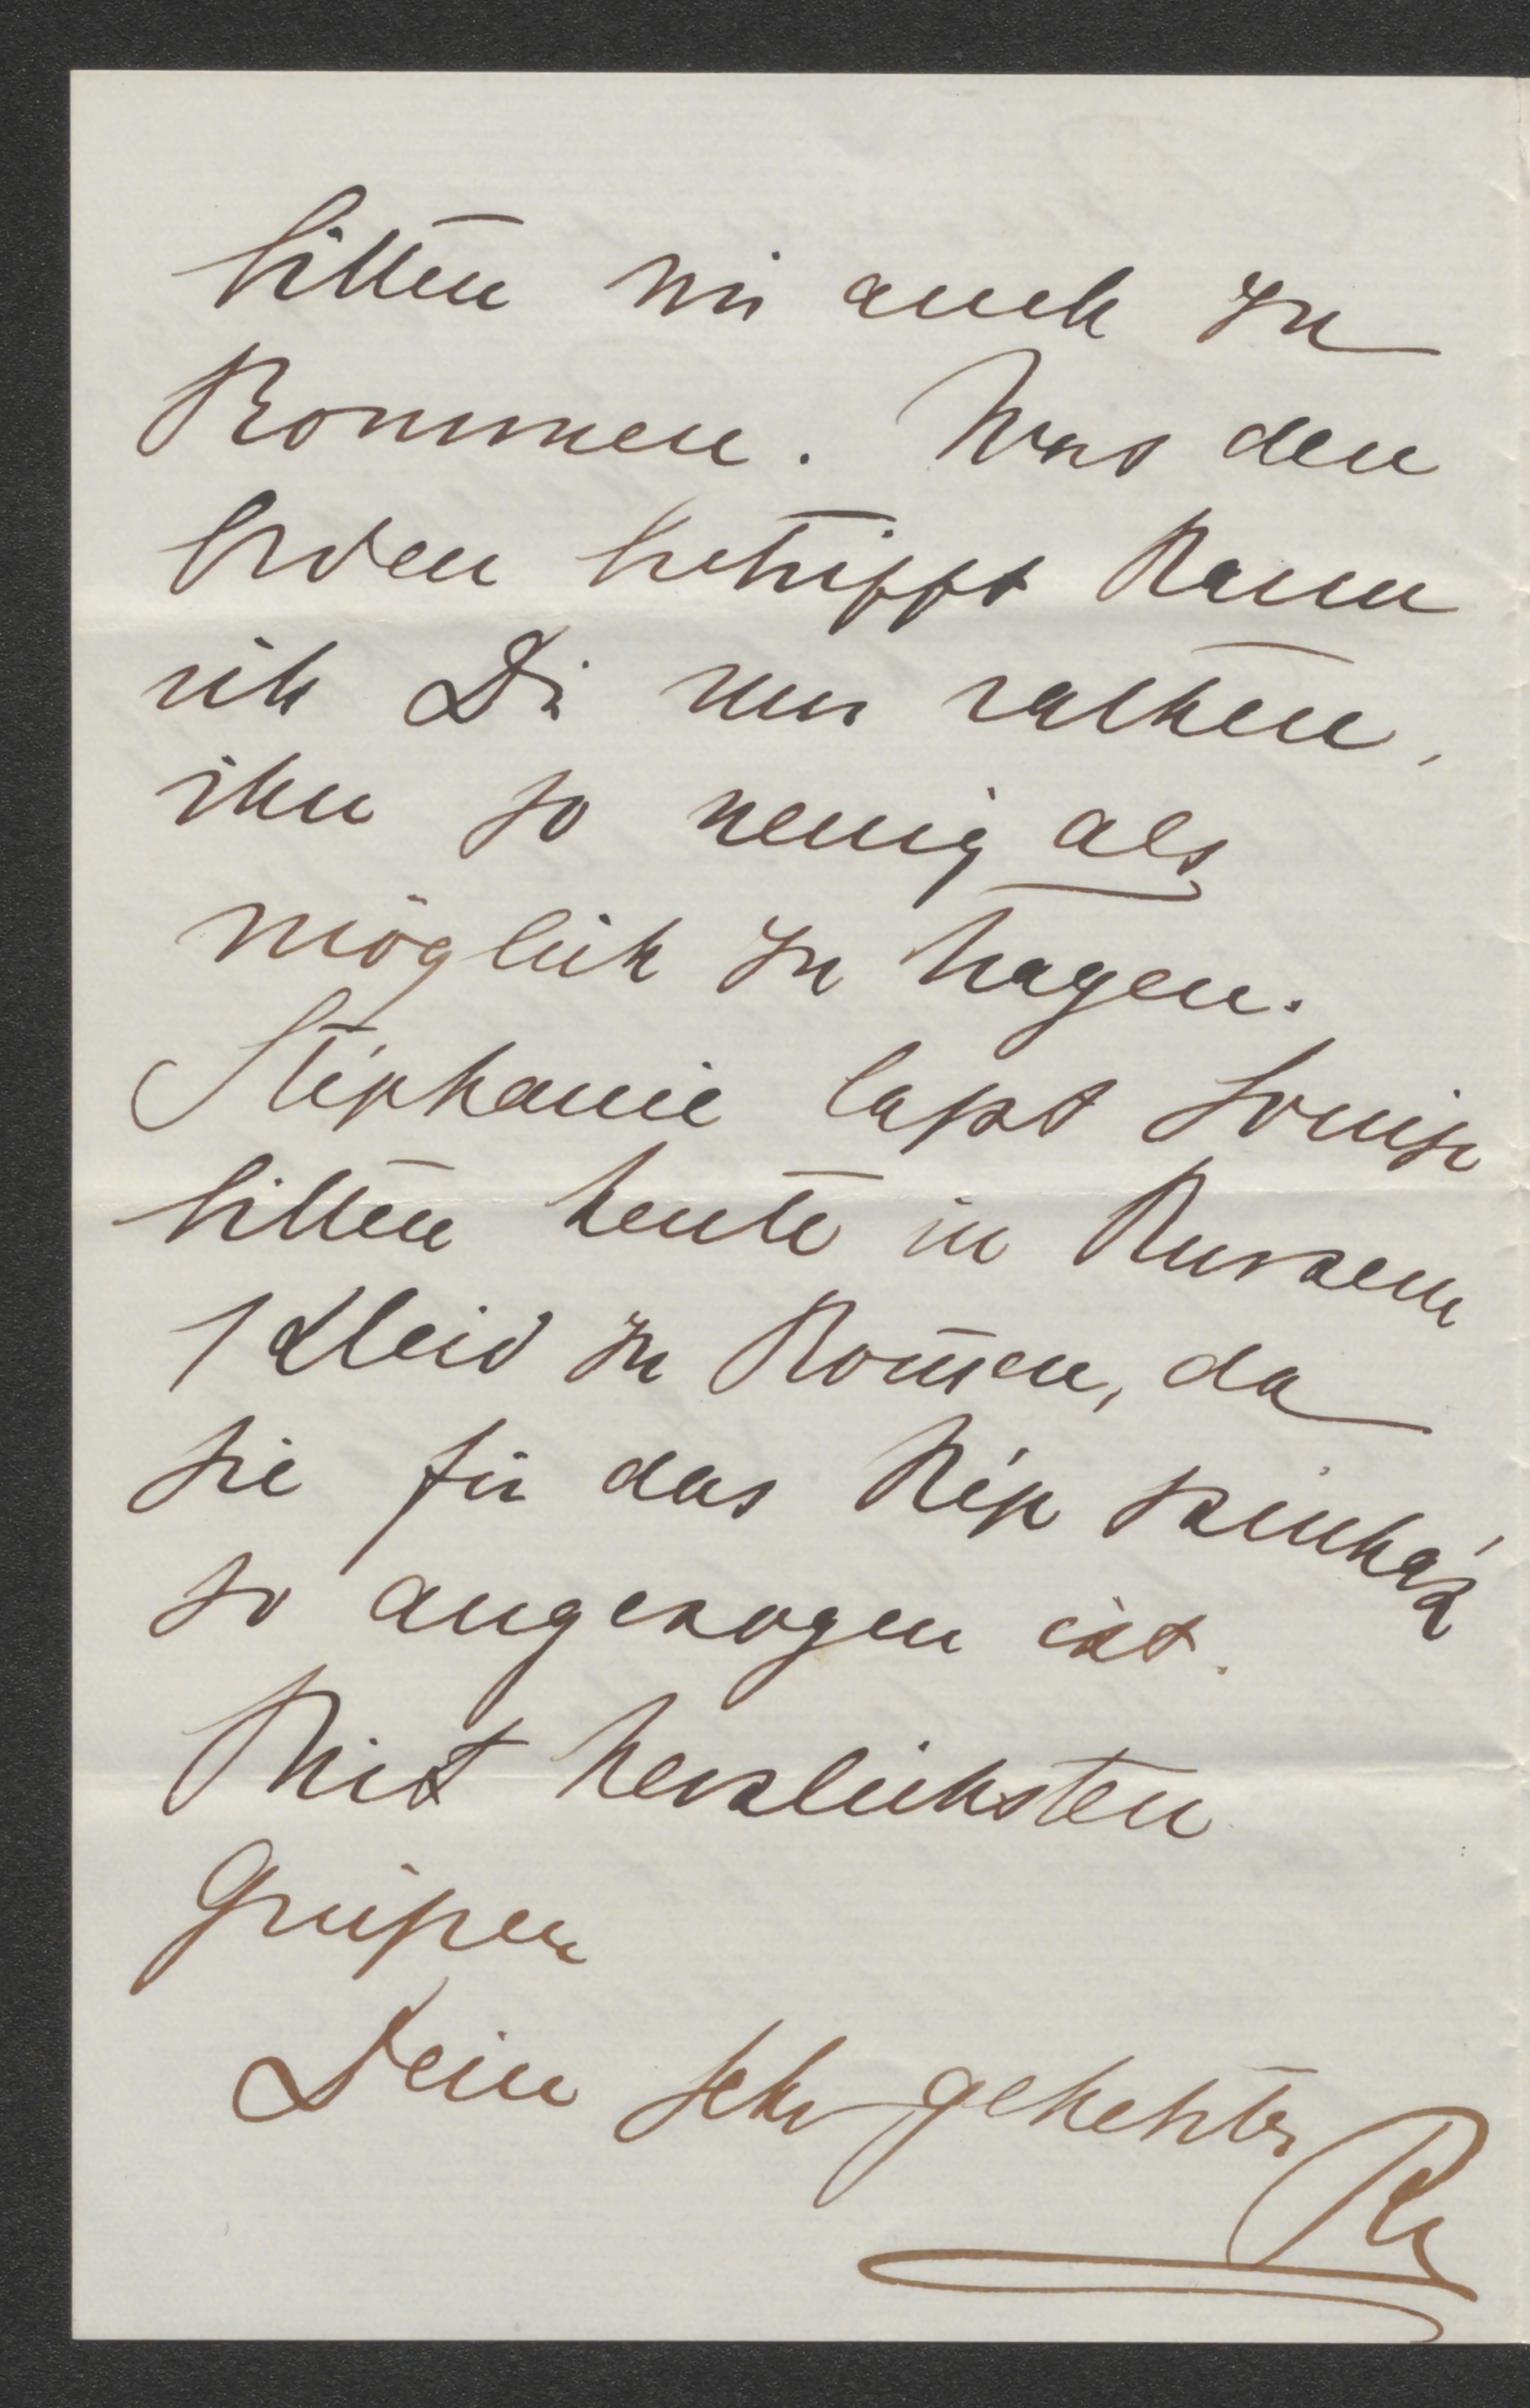 bitten wir auch zu
kommen. Was den
Orden betrifft kann
ich Dir nur rathen,
ihn so wenig als
möglich zu tragen.
Stéphanie lapt Louise
bitten heute in kurzem
Kleid zu kom̄en, da
sie für das Nép szinház
so angezogen ist.
Mit herzlichsten
Grüßen
Dein sehr geheizter